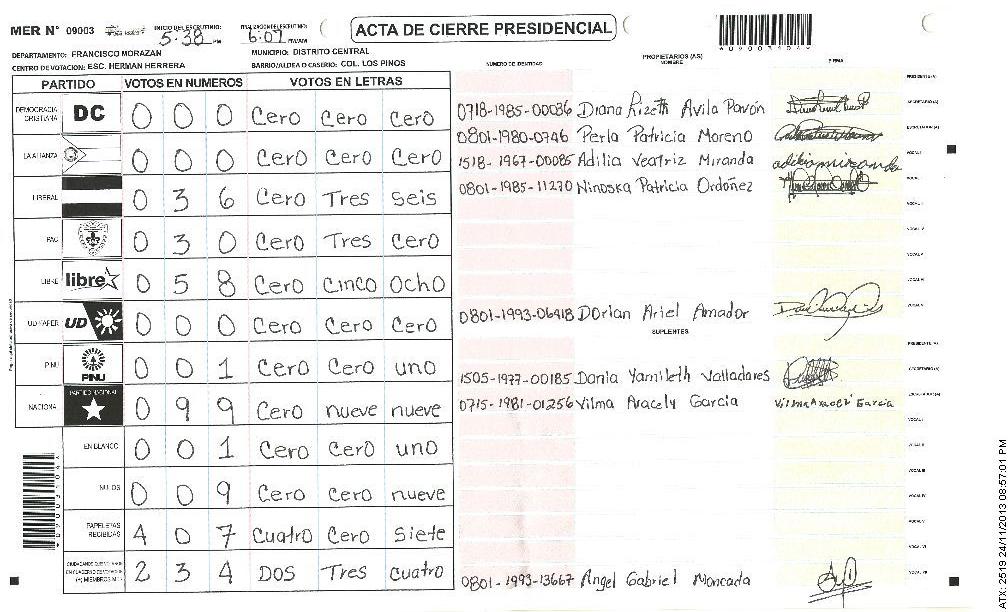 MER Nº 09003 INICIO DEL ESCRUTINIO: 5:38 PM FINALIZACION DEL ESCRUTINIO: 6:07 ACTA DE CIERRE PRESIDENCIAL
DEPARTAMENTO: FRANCISCO MORAZAN MUNICIPIO: DISTRITO CENTRAL
CENTRO DE VOTACION: ESC. HERMAN HERRERA BARRIO/ALDEA O CASERIO: COL. LOS PINOS
PARTIDO VOTOS EN NUMEROS VOTOS EN LETRAS
NUMERO DE IDENTIDAD PROPIETARIOS (AS) NOMBRE FIRMA
DEMOCRACIA CRISTIANA DC 0 0 0 Cero Cero Cero
LA ALIANZA 0 0 0 Cero Cero Cero
LIBERAL 0 3 6 Cero Tres seis
PAC 0 3 0 Cero Tres Cero
LIBRE libre 0 5 8 Cero cinco ocho
UD-FAPER UD 0 0 0 Cero Cero Cero
PINU PINU 0 0 1 Cero Cero uno
NACIONAL PARTIDO NACIONAL 0 9 9 Cero nueve nueve
EN BLANCO 0 0 1 Cero Cero uno
NULOS 0 0 9 Cero Cero nueve
PAPELETAS RECIBIDAS 4 0 7 Cuatro Cero siete
2 3 4 Dos Tres cuatro
PRESIDENTE (A)
0718-1985-00086 Diana Lizeth Avila Pavón SECRETARIO (A)
0801-1980-0746 Perla Patricia Moreno ESCRUTADOR (A)
1518-1967-00085 Adilia Veatriz Miranda adilia miranda VOCAL I
0801-1985-11270 Ninoska Patricia Ordóñez
0801-1993-06418 Dorian Ariel Amador
SUPLENTES
PRESIDENTE (A)
1505-1977-00185 Dania Yamileth Valladares SECRETARIO (A)
0715-1981-01256 Vilma Aracely Garcia Vilma Araceli Garcia
0801-1993-13667 Angel Gabriel Moncada
ATX: 2519 24/11/2013 08:57:01 PM